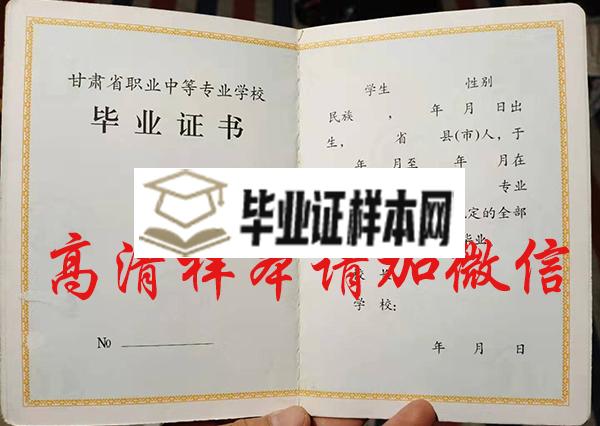 甘肃省职业中等专业学校
毕业证书
No
学生 性别
民族 , 年 月 日出
生, 省 县(市)人,于
年 月至 年 月在
专业
定的全部
毕业
毕业证样本网
高清样本请加微信
学 校:
年 月 日